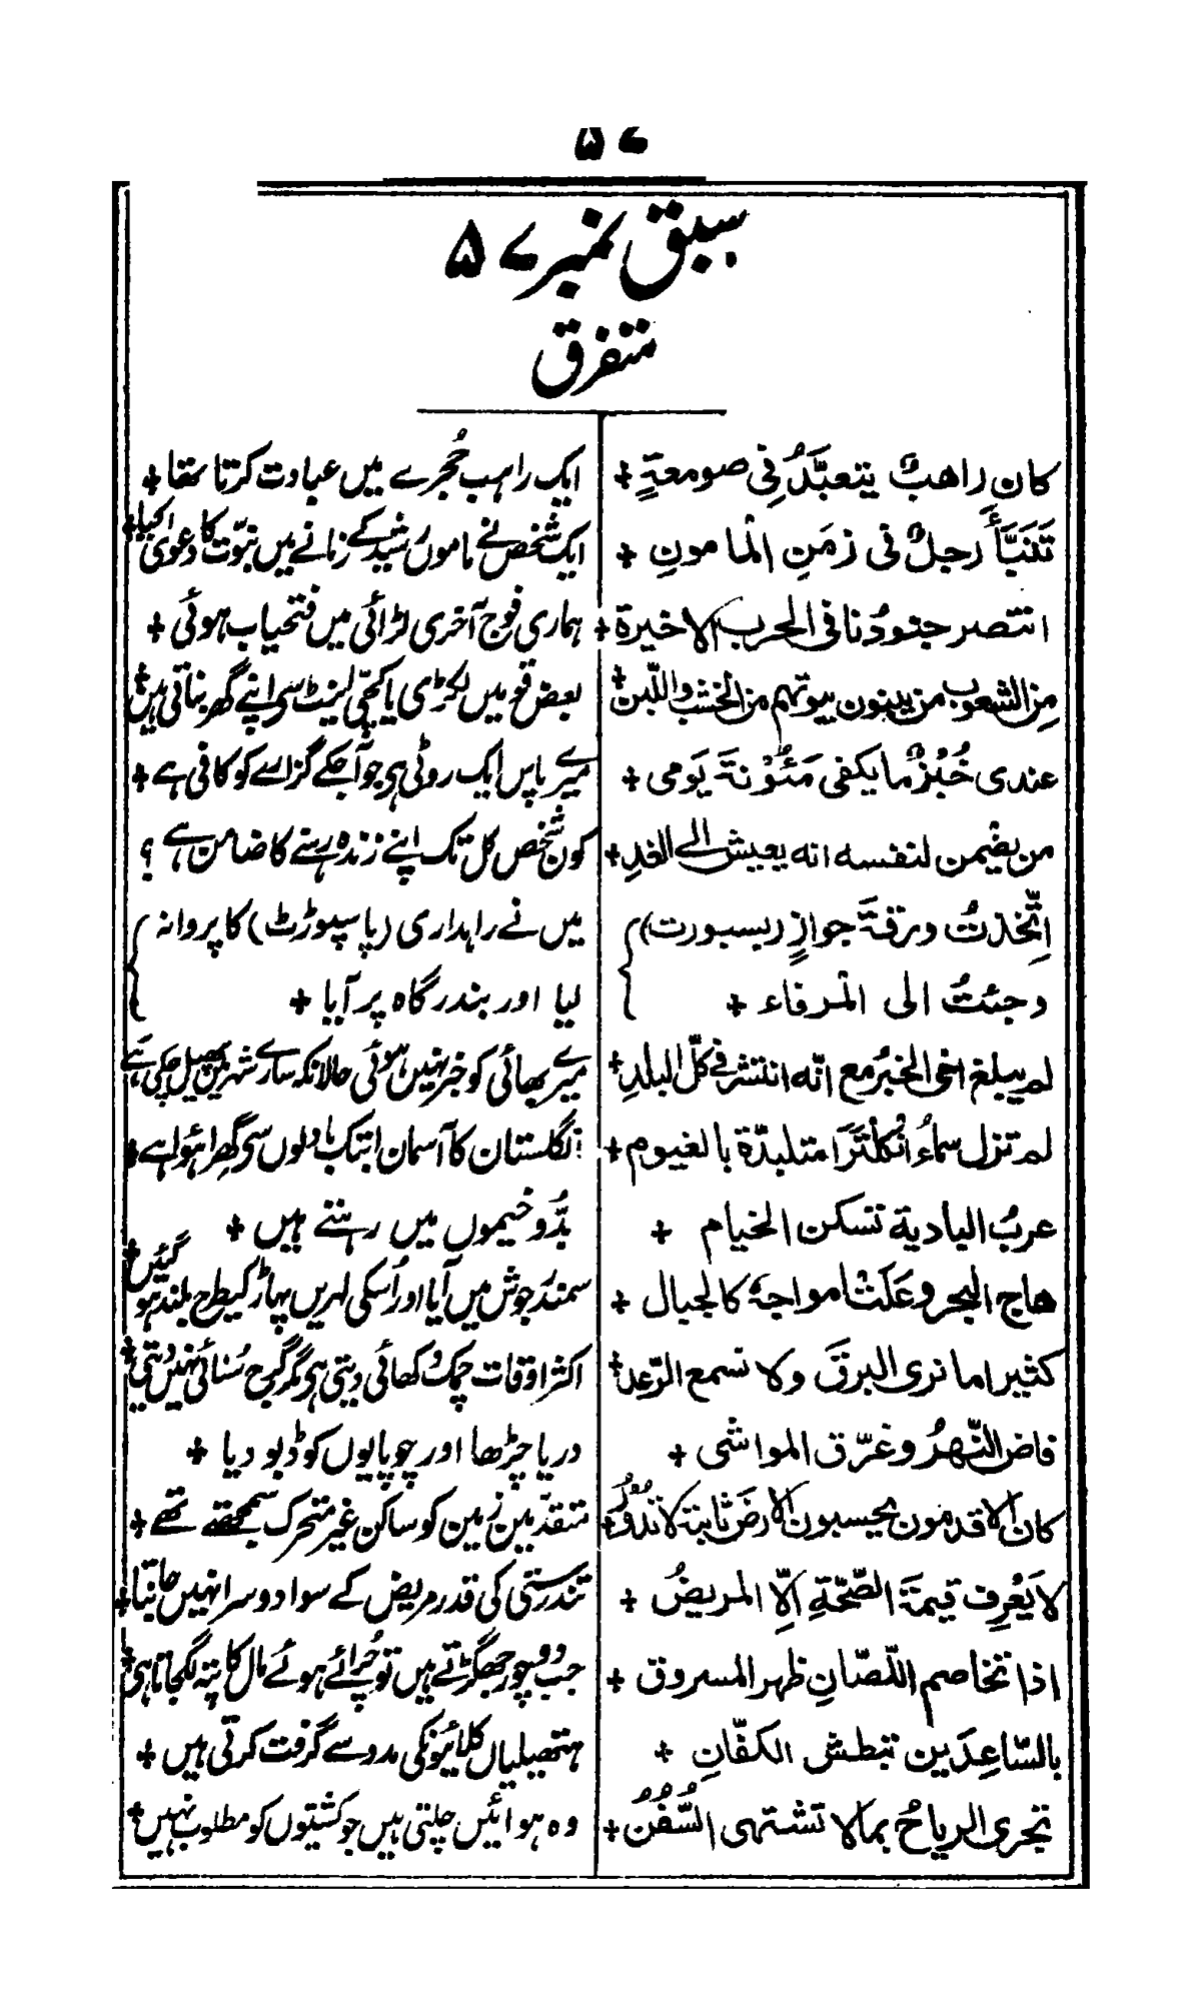 ۵۷
سبق نمبر ۵۷
متفرق
کان راهبٌ یتعبَّدُ فِی صومعۃٍ + ایک راہب حُجرے میں عبادت کرتا تھا +
تَنَبَّأَ رجلٌ فی زمَنِ المامونِ + ایک شخص نے ماموں رشید کے زمانے میں نبوّت کا دعویٰ کیا +
انتصر جنودُنا فی الحرب الاخیرۃ + ہماری فوج آخری لڑائی میں فتحیاب ہوئی +
مِن الشعوب من یبنون بیوتهم من الخشب واللّبن + بعض قومیں لکڑی یا کچّی اینٹ سی اپنے گھر بناتی ہیں +
عندی خُبْزٌ ما یکفی مَئُوْنۃَ یَومی + میرے پاس ایک روٹی ہی جو آجکے گزارے کو کافی ہے +
من یضْمن لنفسه انه یعیش الی الغدِ + کون شخص کل تک اپنے زندہ رہنے کا ضامن ہے ؟
اِتَّخذتُ ورقۃَ جوازٍ (بسبورت) میں نے راہداری (پاسپوڑٹ) کا پروانہ
وجئتُ الی المرفاء + لیا اور بندرگاہ پر آیا +
لم یبلغ اخی الخبرُ مع انّه انتشر فی کلّ البلدِ + میرے بھائی کو خبر نہیں ہوئی حالانکہ سارے شہر میں پھیل چکی ہے
لم تزل سماءُ انکلترا متلبدّۃ بالغیوم + انگلستان کا آسمان ابتک بادلوں سی گھرا ہوا ہے +
عربُ البادیۃ تسکن الخیام + بدُّو خیموں میں رہتے ہیں +
هاج البحر وعَلَتْ امواجهٗ کالجبال + سمندر جوش میں آیا اور اُسکی لہریں پہاڑ کیطرح بلند ہو گئیں +
کثیرا ما نری البرقَ ولا نسمع الرّعد + اکثر اوقات چمک دکھائی دیتی ہی مگر گرج سُنائی نہیں دیتی +
فاض النّهرُ وغرّق المواشی + دریا چڑھا اور چوپایوں کو ڈبو دیا +
کان الاقدمون یحسبون الارضَ ثابتۃ لا تدُوْرُ + متقدّمین زمین کو ساکن غیر متحرک سمجھتے تھے +
لا یَعْرِف قیمۃَ الصّحّۃِ اِلّا المریضُ + تندرستی کی قدر مریض کے سوا دوسرا نہیں جانتا +
اذا تخاصم اللّصّانِ ظهر المسروق + جب دو چور جھگڑتے ہیں تو چُرائے ہوئے مال کا پتہ لگجاتا ہی +
بالسّاعِدَین تبطش الکفّانِ + ہتھیلیاں کلائیونکی مدد سے گرفت کرتی ہیں +
تجری الریاحُ بما لا تشتهی السُّفُنُ + وہ ہوائیں چلتی ہیں جو کشتیوں کو مطلوب نہیں +